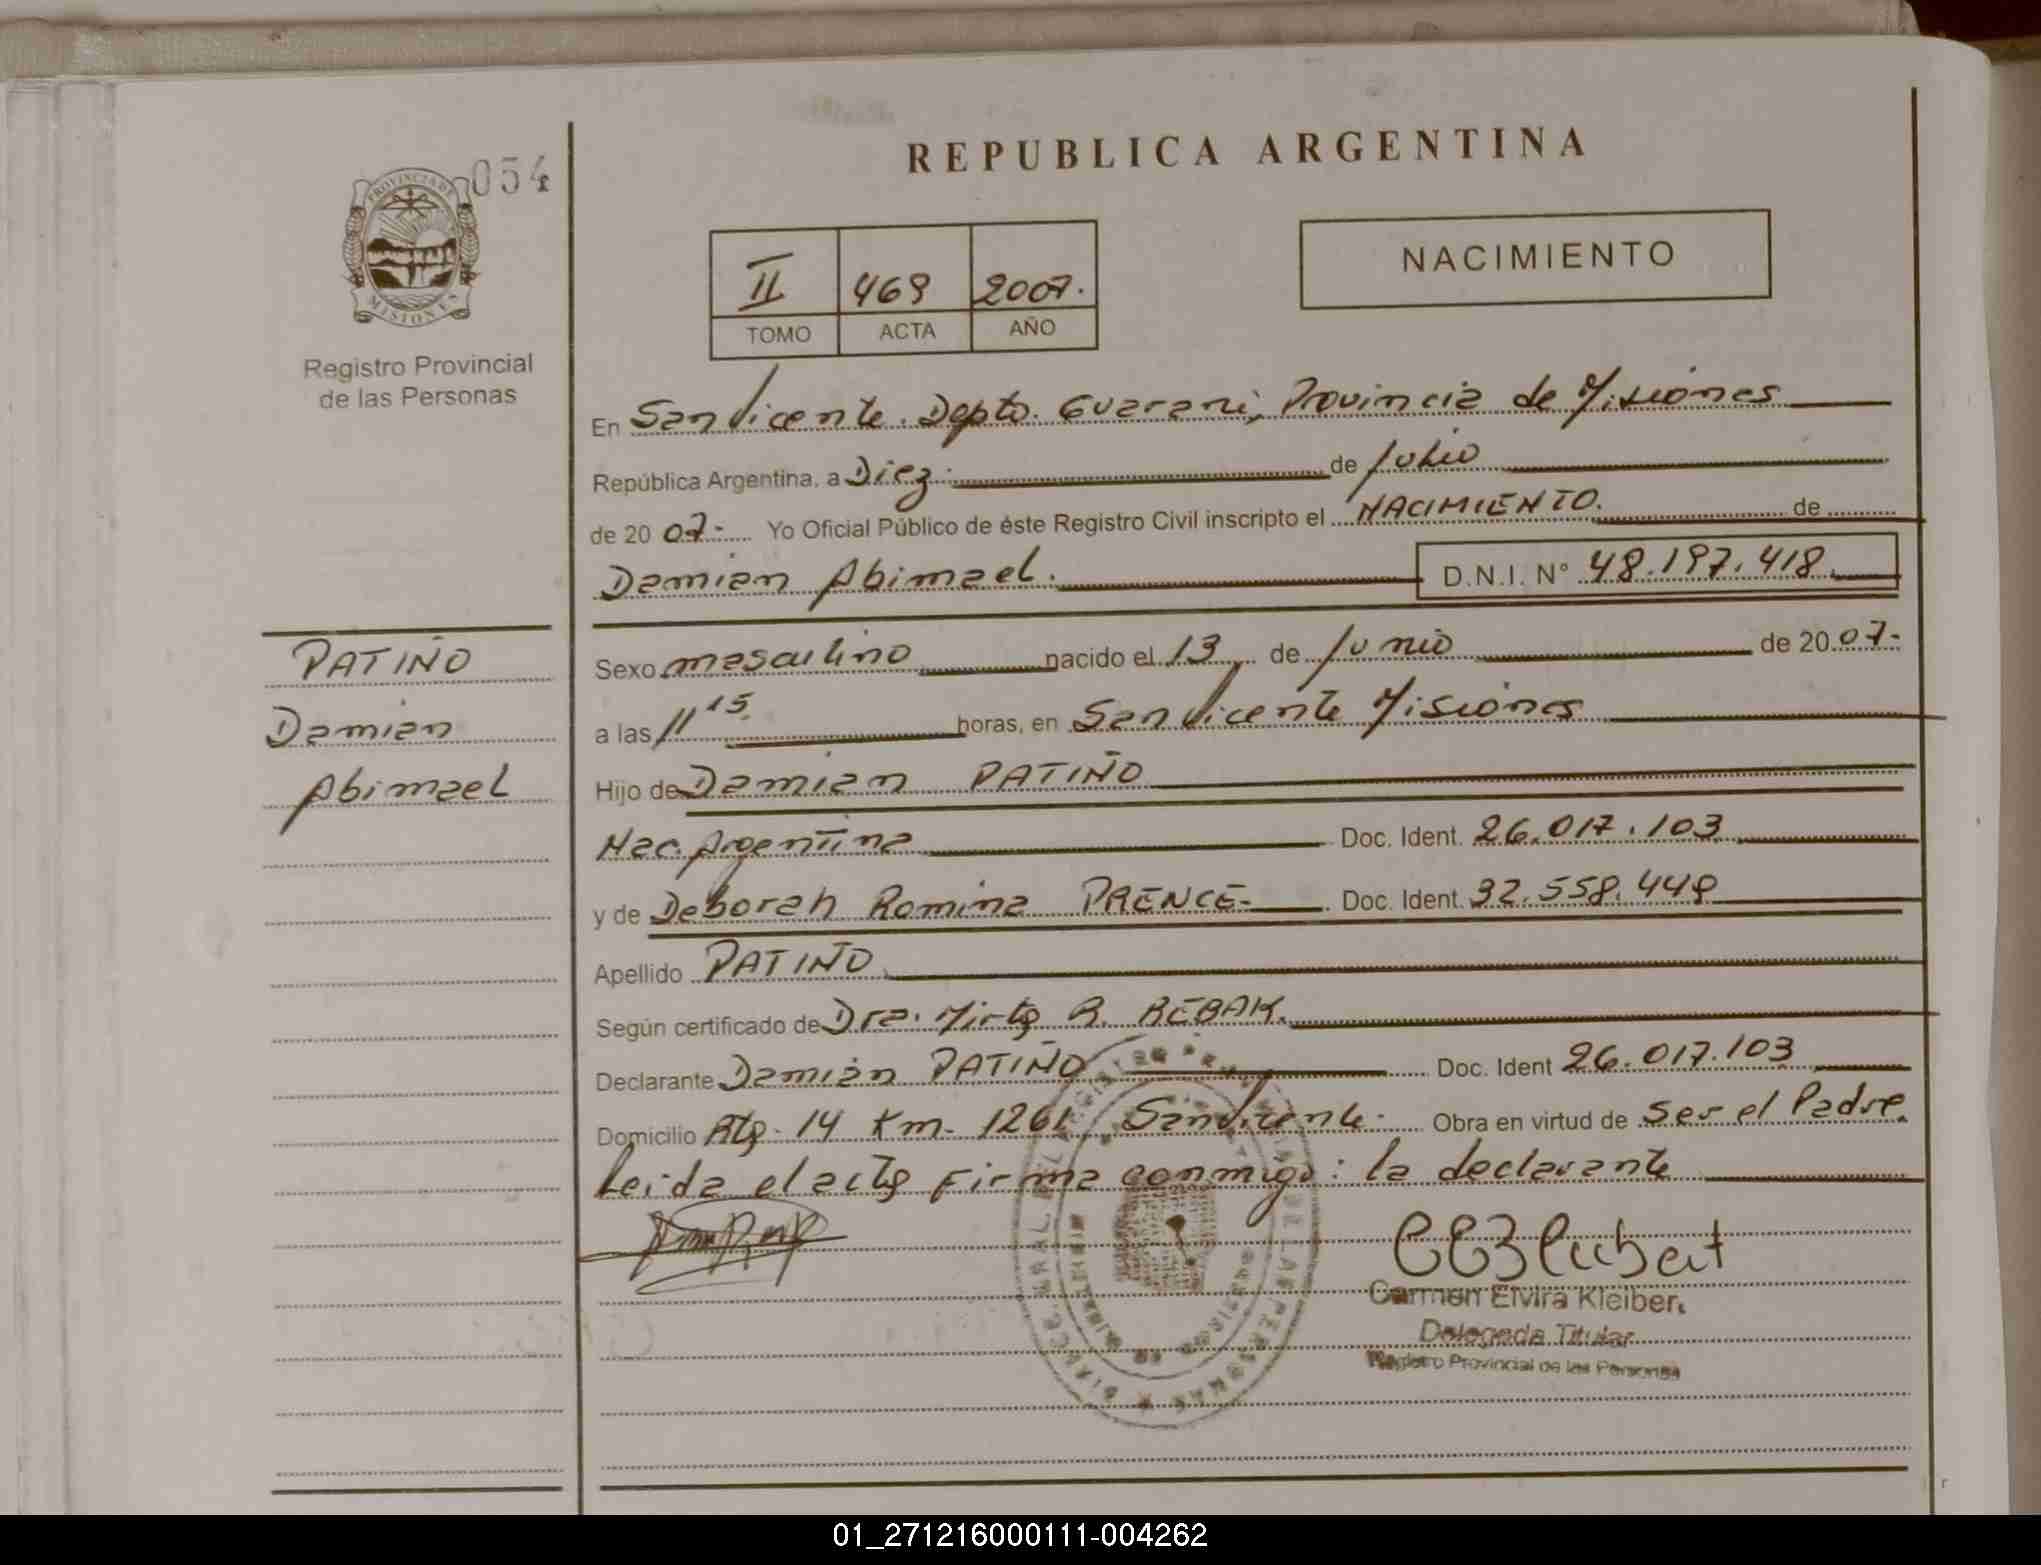 054
PROVINCIA DE
MISIONES
Registro Provincial
de las Personas
REPUBLICA ARGENTINA
II 469 2007.
TOMO ACTA AÑO
NACIMIENTO
En San Vicente. Depto. Guarani, Provincia de Misiones
República Argentina, a Diez de Julio
de 20 07- Yo Oficial Público de éste Registro Civil inscripto el NACIMIENTO. de
Damian Abimael. D.N.I. N° 48.197.418.
PATIÑO
Damian
Abimael
Sexo masculino nacido el 13 de Junio de 20 07-
a las 11 15. horas, en San Vicente Misiones
Hijo de Damian PATIÑO
Nac. Argentina Doc. Ident. 26.017.103
y de Deborah Romina PRENCE- Doc. Ident. 32.558.449
Apellido PATIÑO
Según certificado de Dra. Mirta R. REBAK.
Declarante Damián PATIÑO Doc. Ident 26.017.103
Domicilio Rta. 14 Km. 1261 San Vicente. Obra en virtud de ser el Padre.
Leida el acta Firma conmigo: la declarante
Carmen Elvira Kleiber.
Delegada Titular
Registro Provincial de las Personas
01_271216000111-004262